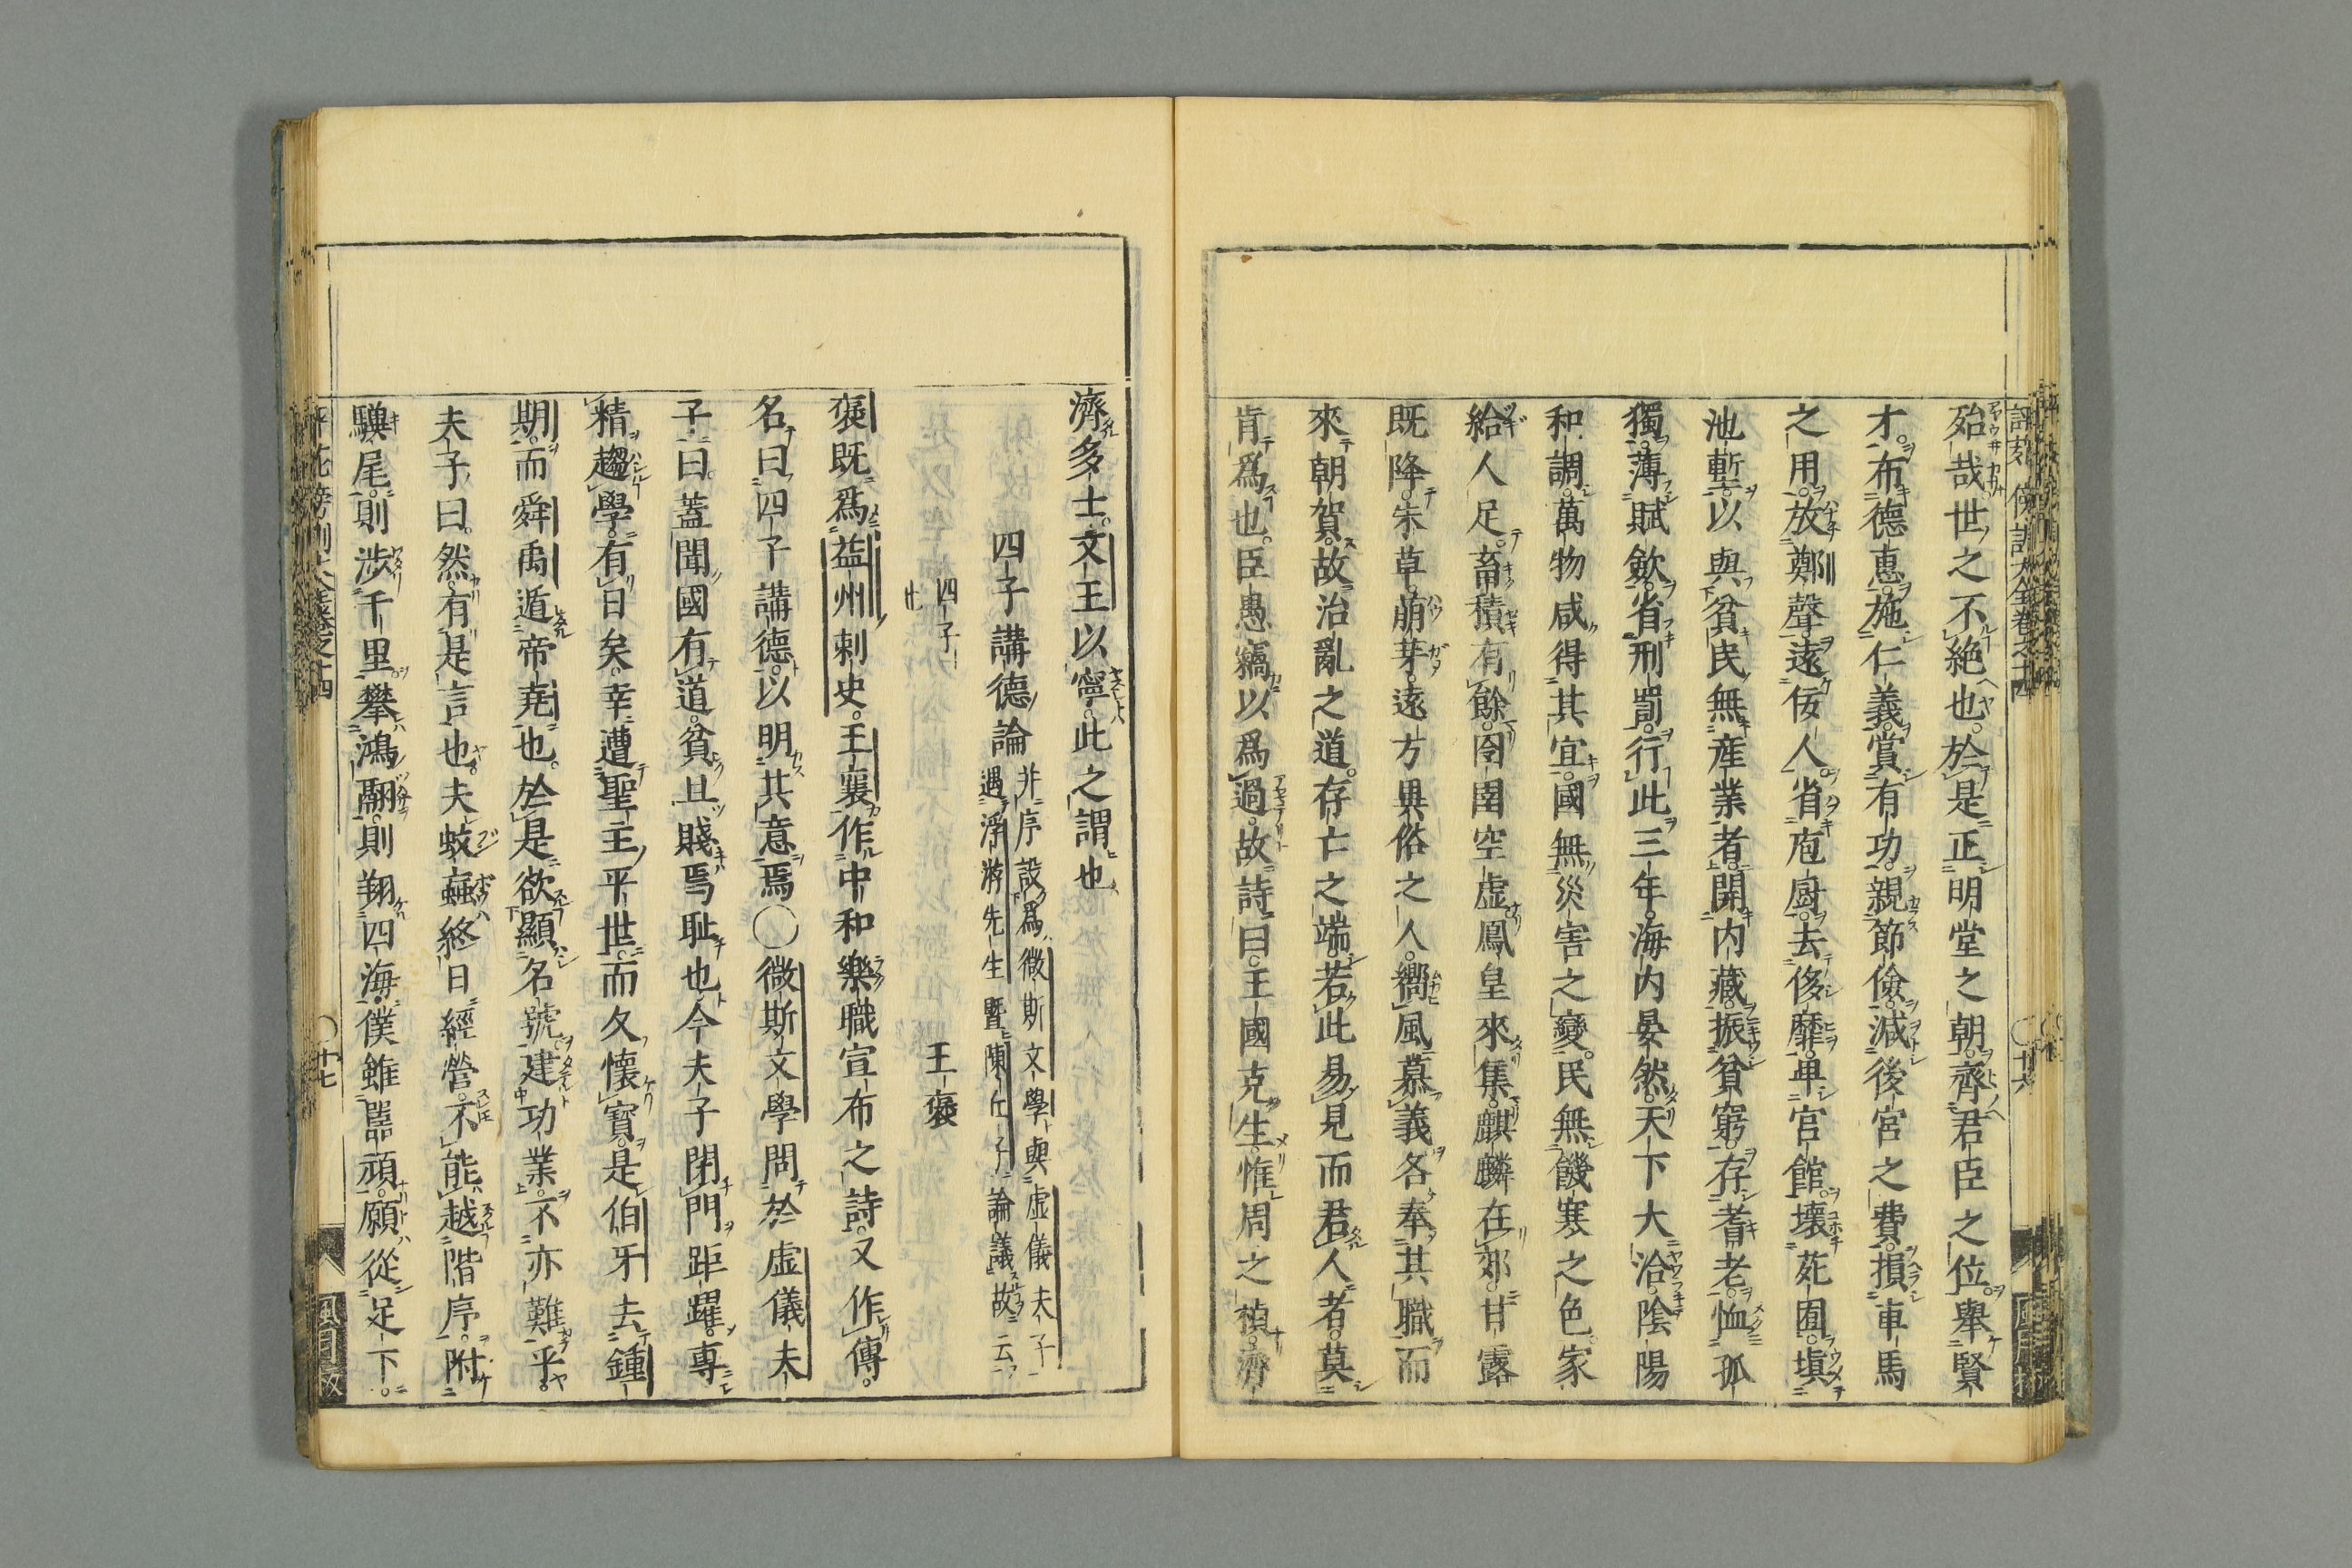 殆哉世之不絶也於是正明堂之朝齊君臣之位舉賢
才布德惠施仁義賞有功親節儉減後宮之費損車馬
之用放鄭聲遠佞人省庖廚去侈靡卑官館壞苑囿塡
池塹以與貧民無産業者開内藏振貧窮存耆老恤孤
獨薄賦斂省刑罰行此三年海内晏然天下大洽陰陽
和調萬物咸得其宜國無災害之變民無饑寒之色家
給人足畜積有餘囹圄空虛鳳皇來集麒麟在郊甘露
既降朱草萠芽遠方異俗之人嚮風慕義各奉其職而
來朝賀故治亂之道存亡之端若此易見而君人者莫
肯爲也臣愚竊以爲過故詩曰王國克生惟周之楨濟
濟多士文王以寧此之謂也
四子講德論
非序設爲微斯文學與虛儀夫子
遇浮游先生曁陳丘子論議故云
四子
王襃
襃既爲益州刺史王襄作中和樂職宣布之詩又作傳
名曰四子講德以明其意焉〇微斯文學問於虛儀夫
子曰蓋聞國有道貧且賤焉耻也今夫子閉門距躍專
精趨學有日矣幸遭聖主平世而久懷寶是伯牙去鍾
期而舜禹遁帝堯也於是欲顯名號建功業不亦難乎
夫子曰然有是言也夫蚊蝱終日經營不能越階序附
驥尾則涉千里攀鴻翮則翔四海僕雖嚚頑願從足下
十七